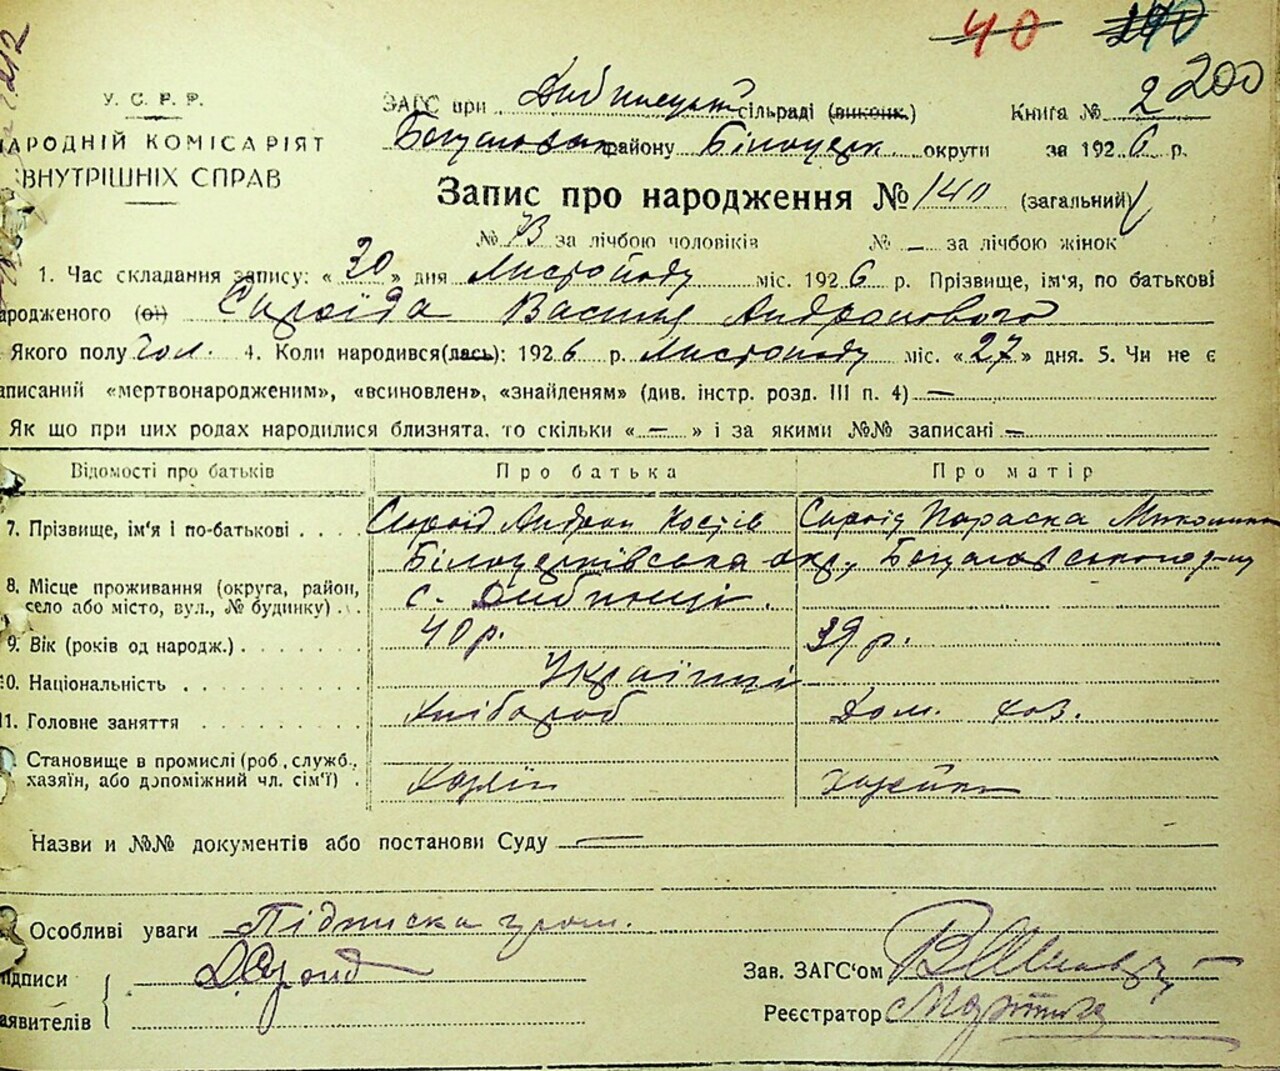 40 240 200
212
У. С. Р. Р.
НАРОДНІЙ КОМІСАРІЯТ
ВНУТРІШНІХ СПРАВ
ЗАГС при Дибинецькій сільраді (виконк.) Книга № 2
Богуславськ району Білоцерк. округи за 1926 р.
Запис про народження № 140 (загальний)
№ 73 за лічбою чоловіків № — за лічбою жінок
1. Час складання запису: «30» дня Листопаду міс. 1926 р. Прізвище, ім'я, по батькові
народженого (ої) Сироїда Василя Андронового
Якого полу чол. 4. Коли народився(лась): 1926 р. Листопаду міс. «27» дня. 5. Чи не є
записаний «мертвонародженим», «всиновлен», «знайденям» (див. інстр. розд. III п. 4) —
Як що при цих родах народилися близнята, то скільки « — » і за якими №№ записані —
Відомості про батьків Про батька Про матір
7. Прізвище, ім'я і по-батькові . . . . Сироїд Андрон Костів Сироїд Параска
Білоцерківська окр., Богуславського р-ну
8. Місце проживання (округа, район,
село або місто, вул., № будинку) . . с. Дибинці.
9. Вік (років од народж.) . . . . . . . 40 р. 39 р.
10. Національність . . . . . . . . . . Українці
11. Головне заняття . . . . . . . . . Хлібороб Дом. хоз.
Становище в промислі (роб., служб.,
хазяїн, або допоміжний чл. сім'ї) . Хазяїн хазяйка
Назви и №№ документів або постанови Суду —
Особливі уваги Підписка гром.
Підписи
заявителів
Зав. ЗАГС'ом
Реєстратор